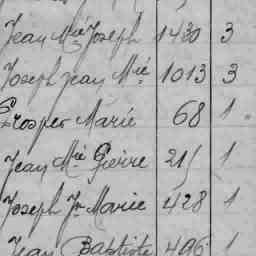 Jean Mie Joseph 1430 3
Joseph Jean Mie 1013 3
Prosper Marie 68 1
Jean Mie Pierre 215 1
Joseph Jn Marie 428 1
Jean Baptiste 496 1